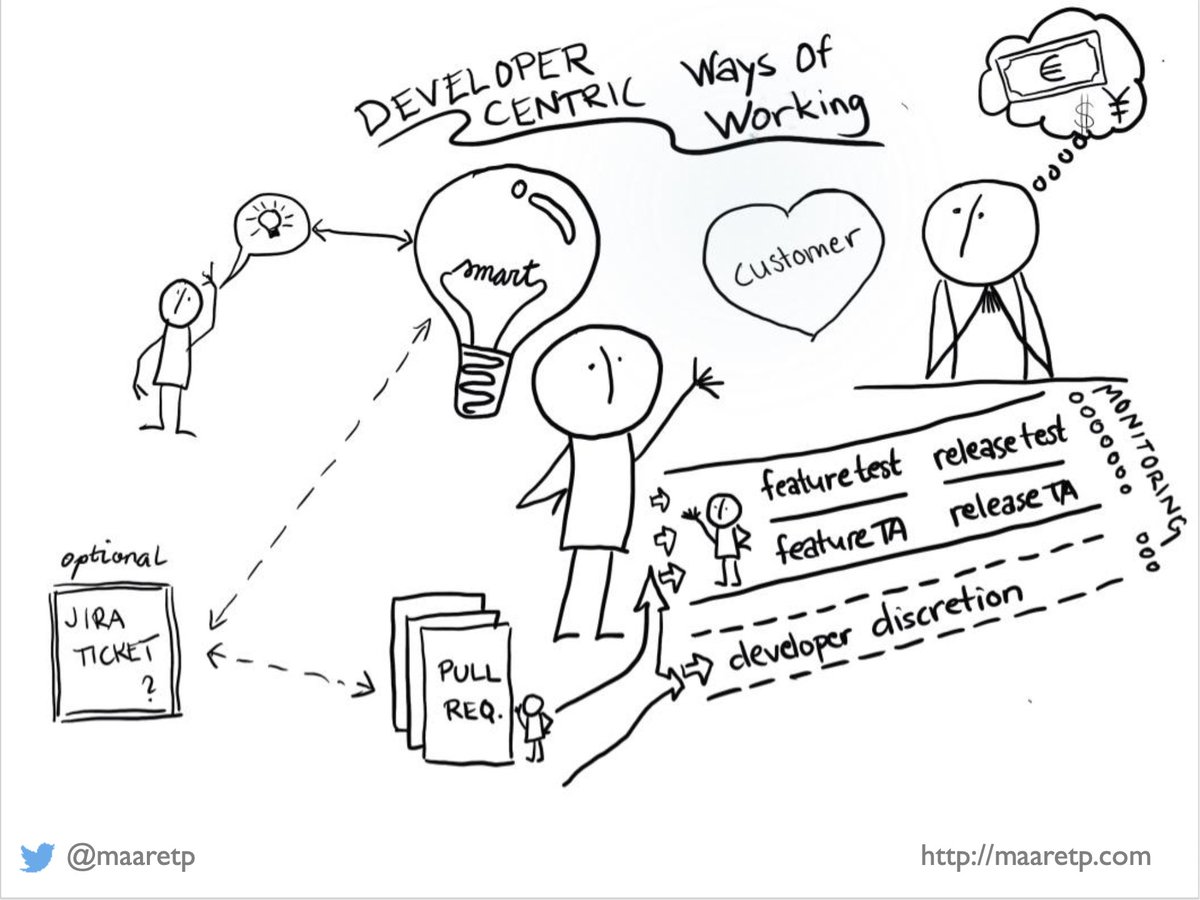 DEVELOPER
CENTRIC
Ways Of
Working
€
$ ¥
smart
customer
MONITORING
feature test
release test
feature TA
release TA
developer discretion
optional
JIRA
TICKET
?
PULL
REQ.
@maaretp
http://maaretp.com